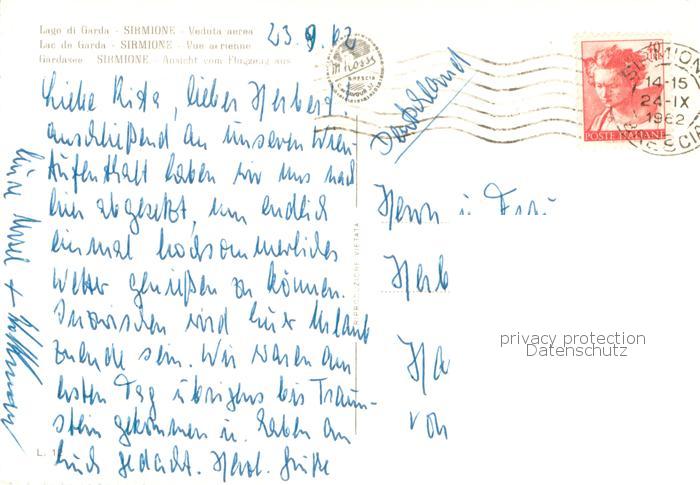 Lago di Garda - SIRMIONE - Veduta aerea
Lac de Garda - SIRMIONE - Vue aerienne
Gardasee SIRMIONE - Ansicht vom Flugzeug aus
23.9.62
BRESCIA
SIRMIONE
14-15
24-IX
1962
BRESCIA
POSTE ITALIANE
Deutschland
Liebe Rita, lieber Herbert,
anschließend an unseren Wien-
Aufenthalt haben wir uns nach
hier abgesetzt, um endlich
einmal hochsommerliches
Wetter genießen zu können.
Inzwischen wird Eurer Urlaub
zuende sein. Wir waren am
ersten Tag übrigens bis Traun-
stein gekommen u. haben an
Euch gedacht. Herzl. Grüße
Eure
+
Herrn u. Frau
Herb
Ha
von
RIPRODUZIONE VIETATA
privacy protection
Datenschutz
L.